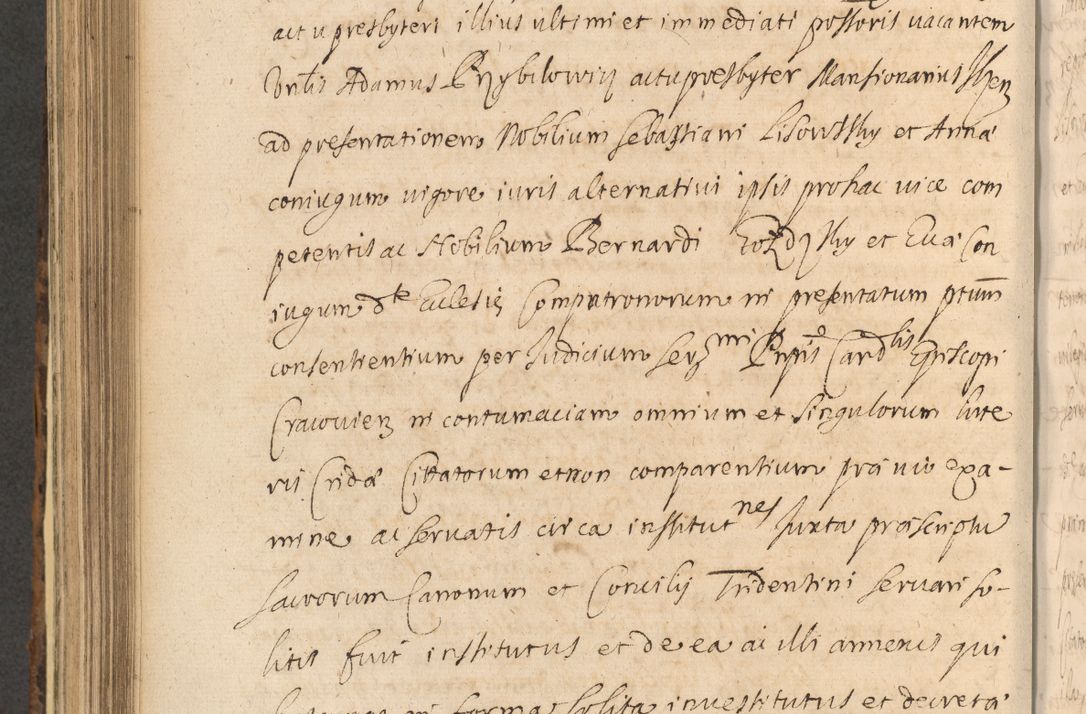 actu presbyteri illius ultimi et immediati possoris vacantem
Vnlis Adamus Przybilowicz actu presbyter Mansionarius
ad presentationem Nobilium Sebastiani Lisowsky et Anna
coniugum vigore iuris alternativi ipsis pro hac vice com
petentis ac Nobilium Bernardi et Eva Con
iugum dte Ecclesię Compatronorum in presentatum ptum
consentientium per Judicium Ser mi Prpis Cardlis Episcopi
Cracovien in contumaciam omnium et singulorum lite
ris Crida Cittatorum et non comparentium prævio exa-
mine ac servatis circa institutnes Juxta præscriptu
sacrorum Canonum et Concilij Tridentini servari so-
litis fuit institutus et de ea ac illi annexis qui
in forma solita investitutus et decreta